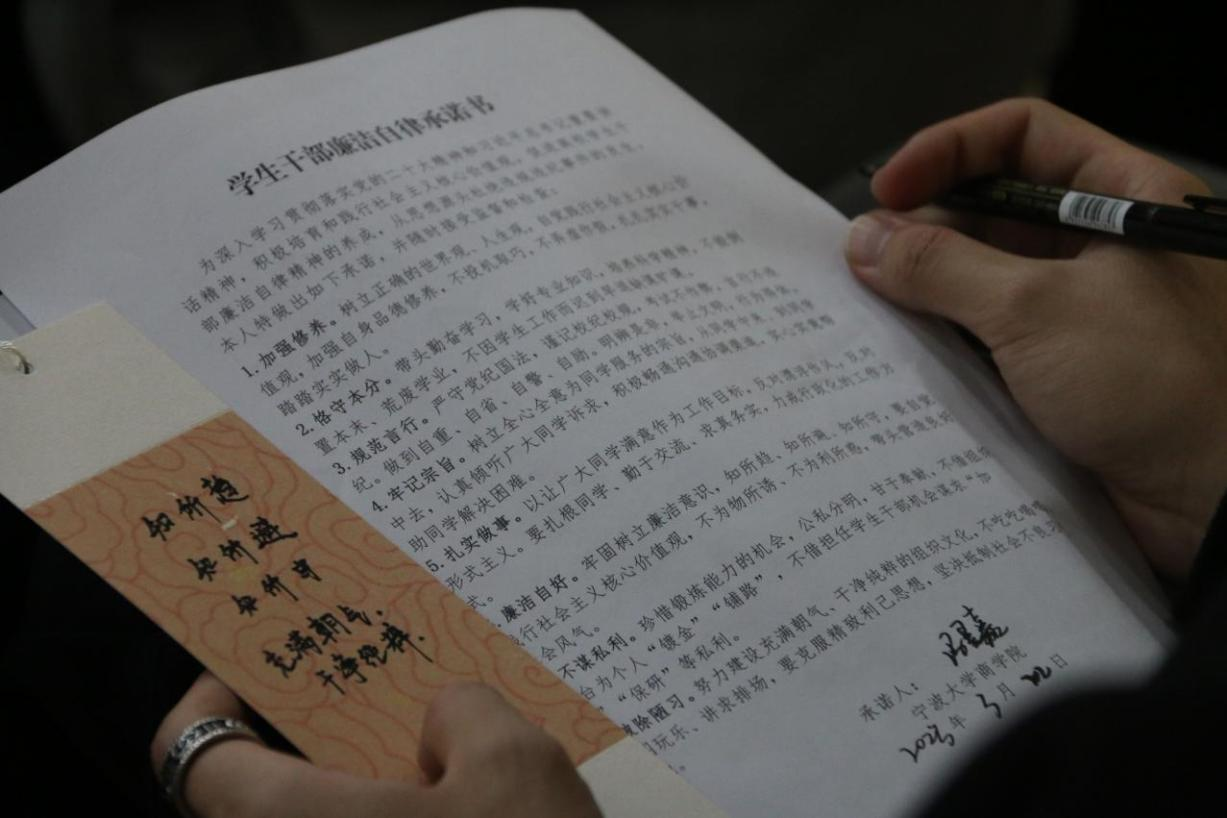 学生干部廉洁自律承诺书
为深入学习贯彻落实党的二十大精神和习近平总书记重要讲
话精神，积极培育和践行社会主义核心价值观，促进我校学生干
部廉洁自律精神的养成，从思想源头杜绝违规违纪事件的发生，
本人特做出如下承诺，并随时接受监督和检查：
1.加强修养。树立正确的世界观、人生观，自觉践行社会主义核心价
值观，加强自身品德修养，不投机取巧，不弄虚作假，扎扎实实干事，
踏踏实实做人。
2.恪守本分。带头勤奋学习，学好专业知识，培养科学精神，不做到
置本末、荒废学业，不因学生工作而迟到早退缺课旷课。
3.规范言行。严守党纪国法，谨记校纪校规，考试不作弊，言行不违
纪。做到自重、自省、自警、自励。明辨是非，举止文明，行为得体。
4.牢记宗旨。树立全心全意为同学服务的宗旨，从同学中来，到同学
中去，认真倾听广大同学诉求，积极畅通沟通协调渠道，实心实意帮
助同学解决困难。
5.扎实做事。以让广大同学满意作为工作目标，反对漂浮作风，反对
形式主义。要扎根同学、勤于交流、求真务实，力戒行政化的工作方
式。
廉洁自好。牢固树立廉洁意识，知所趋、知所避、知所守，要自觉
践行社会主义核心价值观，不为物所诱，不为利所惑，带头营造良好
会风气。
不谋私利。珍惜锻炼能力的机会，公私分明，甘于奉献，不借组织
台为个人“镀金”“铺路”，不借担任学生干部机会谋求“加
“保研”等私利。
除陋习。努力建设充满朝气、干净纯粹的组织文化，不吃吃喝喝
玩乐、讲求排场，要克服精致利己思想，坚决抵制社会不良习
承诺人：
宁波大学商学院
2023年3月22日
知所趋
知所避
知所守
充满朝气，
干净纯粹.